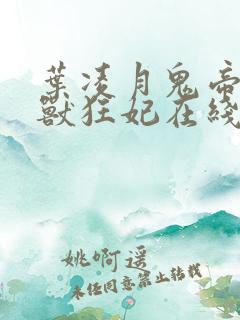 葉凌月鬼帝
獸狂妃在綫
姚啊遥
未经同意禁止转载